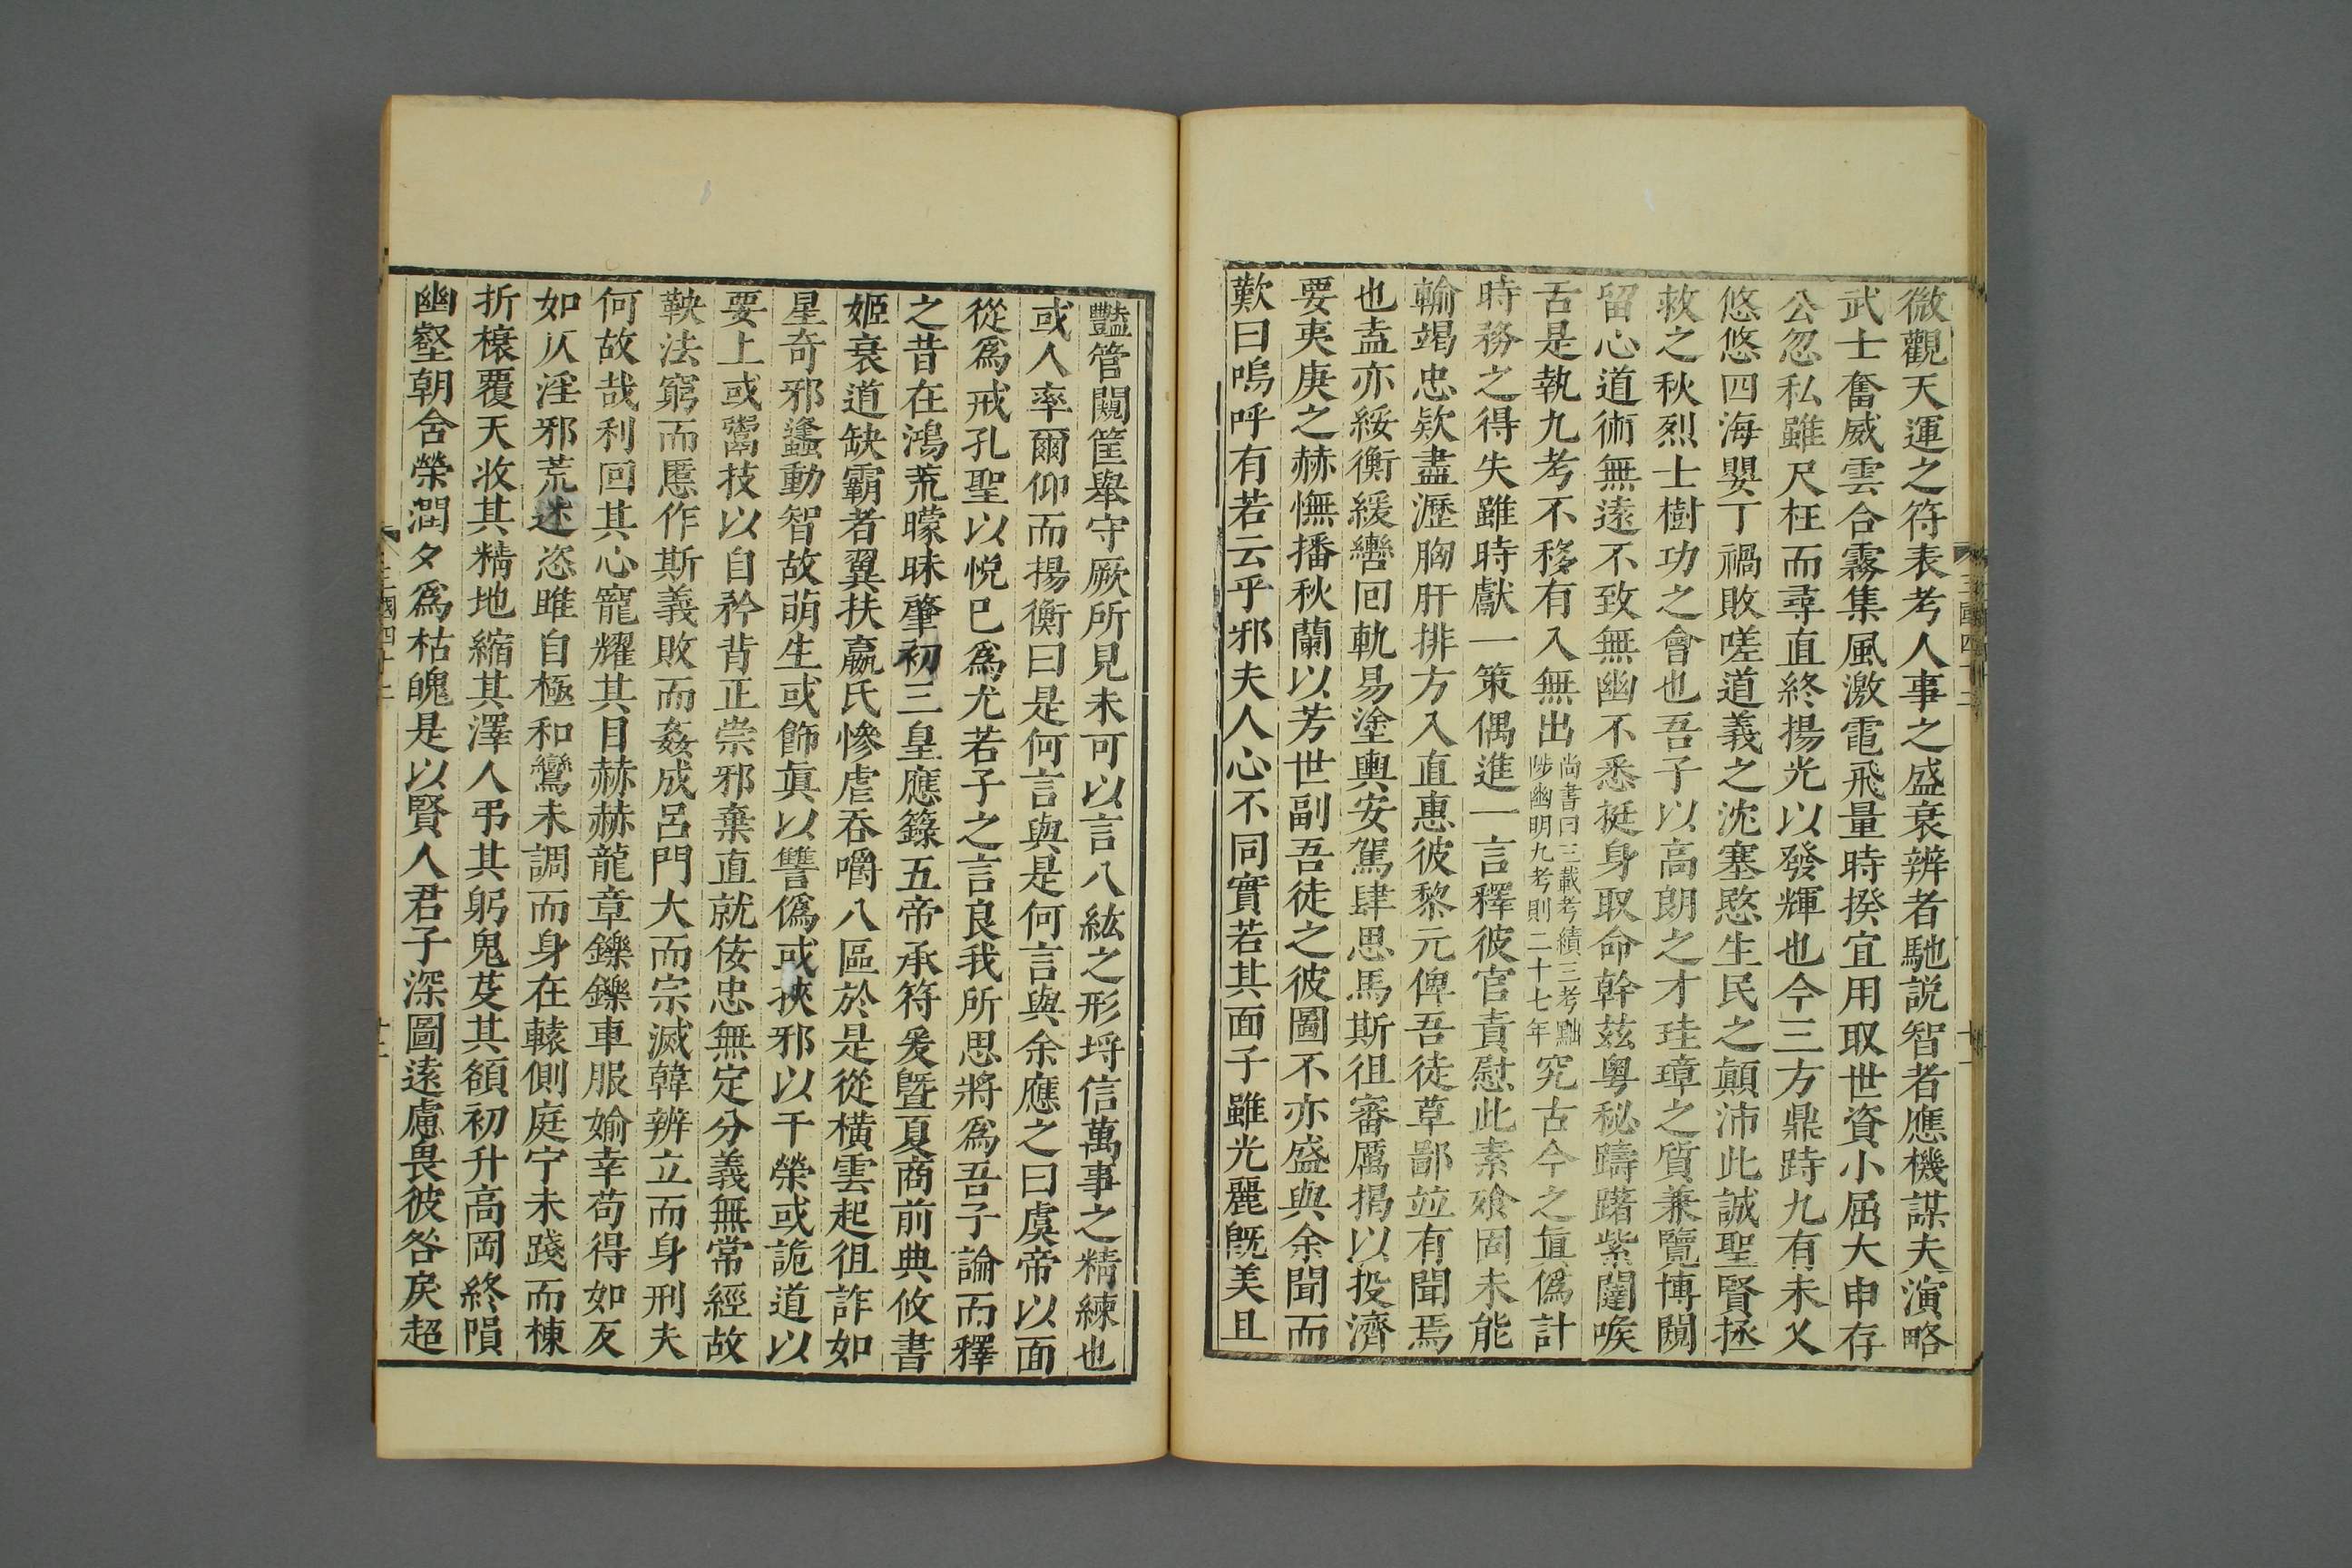 微觀天運之符表考人事之盛衰辨者馳説智者應機謀夫演略
武士奮威雲合霧集風激電飛量時揆宜用取世資小屈大申存
公忽私雖尺枉而尋直終揚光以發輝也今三方鼎跱九有未乂
悠悠四海嬰丁禍敗嗟道義之沈塞愍生民之顚沛此誠聖賢拯
救之秋烈士樹功之會也吾子以高朗之才珪璋之質兼覽博闚
留心道術無遠不致無幽不悉挺身取命幹茲奥秘躊躇紫闥喉
舌是執九考不移有入無出尚書曰三載考績三考黜陟幽明九考則二十七年究古今之眞僞計
時務之得失雖時獻一策偶進一言釋彼官責慰此素飱固未能
輸竭忠欵盡瀝胸肝排方入直惠彼黎元俾吾徒草鄙竝有聞焉
也盍亦綏衡緩轡回軌易塗輿安駕肆思馬斯徂審厲揭以投濟
要夷庚之赫憮播秋蘭以芳世副吾徒之彼圖不亦盛與余聞而
歎曰嗚呼有若云乎邪夫人心不同實若其面子雖光麗旣美且
豔管闚筐舉守厥所見未可以言八紘之形埒信萬事之精練也
或人率爾仰而揚衡曰是何言與是何言與余應之曰虞帝以面
從爲戒孔聖以悅己爲尤若子之言良我所思將爲吾子論而釋
之昔在鴻荒矇昧肇初三皇應籙五帝承符爰曁夏商前典攸書
姬衰道缺霸者翼扶嬴氏慘虐吞嚼八區於是從橫雲起徂詐如
星奇邪蠭動智故萌生或飾眞以讐僞或挾邪以干榮或詭道以
要上或鬻技以自矜背正崇邪棄直就佞忠無定分義無常經故
鞅法窮而慝作斯義敗而姦成呂門大而宗滅韓辨立而身刑夫
何故哉利回其心寵耀其目赫赫龍章鑠鑠車服媮幸苟得如反
如仄淫邪荒迷恣睢自極和鸞未調而身在轅側庭宁未踐而棟
折榱覆天收其精地縮其澤人弔其躬鬼芟其額初升高岡終隕
幽壑朝含榮潤夕爲枯魄是以賢人君子深圖遠慮畏彼咎戾超
三國四十二